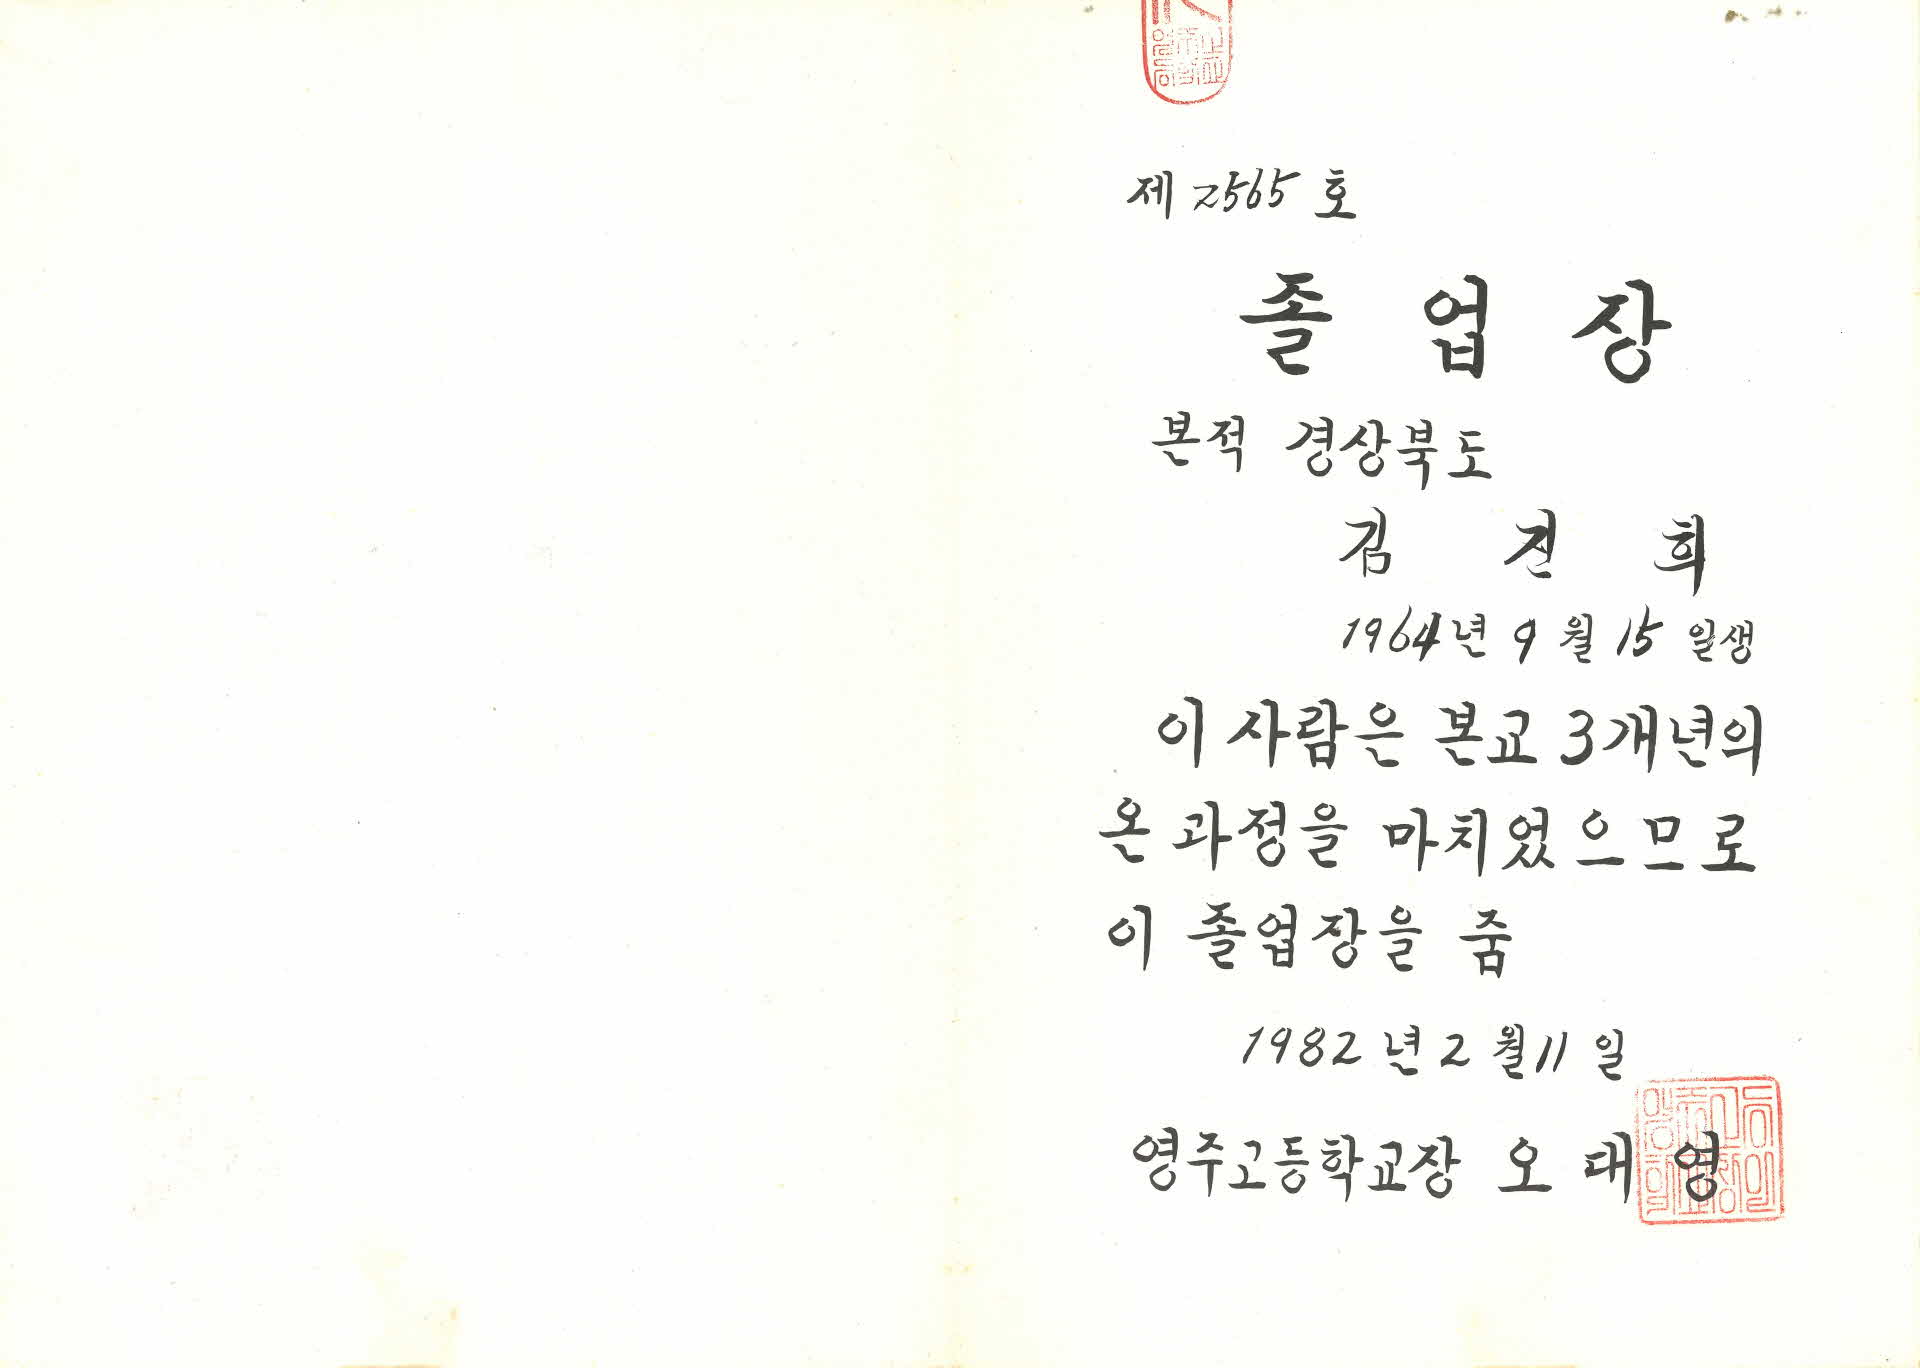 제 2565 호
졸 업 장
본적 경상북도
김 진 희
1964년 9월 15일생
이 사람은 본교 3개년의
온 과정을 마치었으므로
이 졸업장을 줌
1982년 2월 11일
영주고등학교장 오 대 영